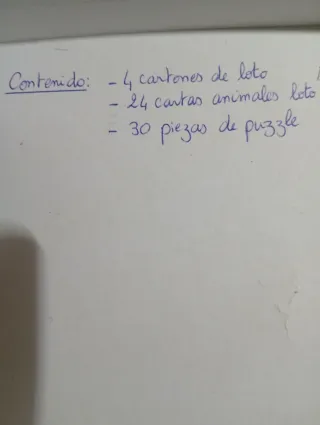 Contenido: - 4 cartones de loto
- 24 cartas animales loto
- 30 piezas de puzzle